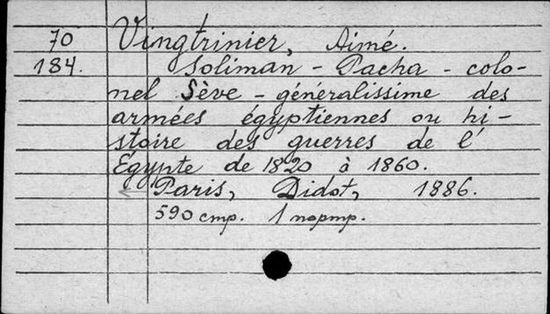 70 Vingtrinier, Aimé.
184. Soliman - Pacha - colo-
nel Sève - généralissime des
armées égyptiennes ou hi-
stoire des guerres de l'
Egypte de 1820 à 1860.
Paris, Didot, 1886.
590 стр. 1 портр.